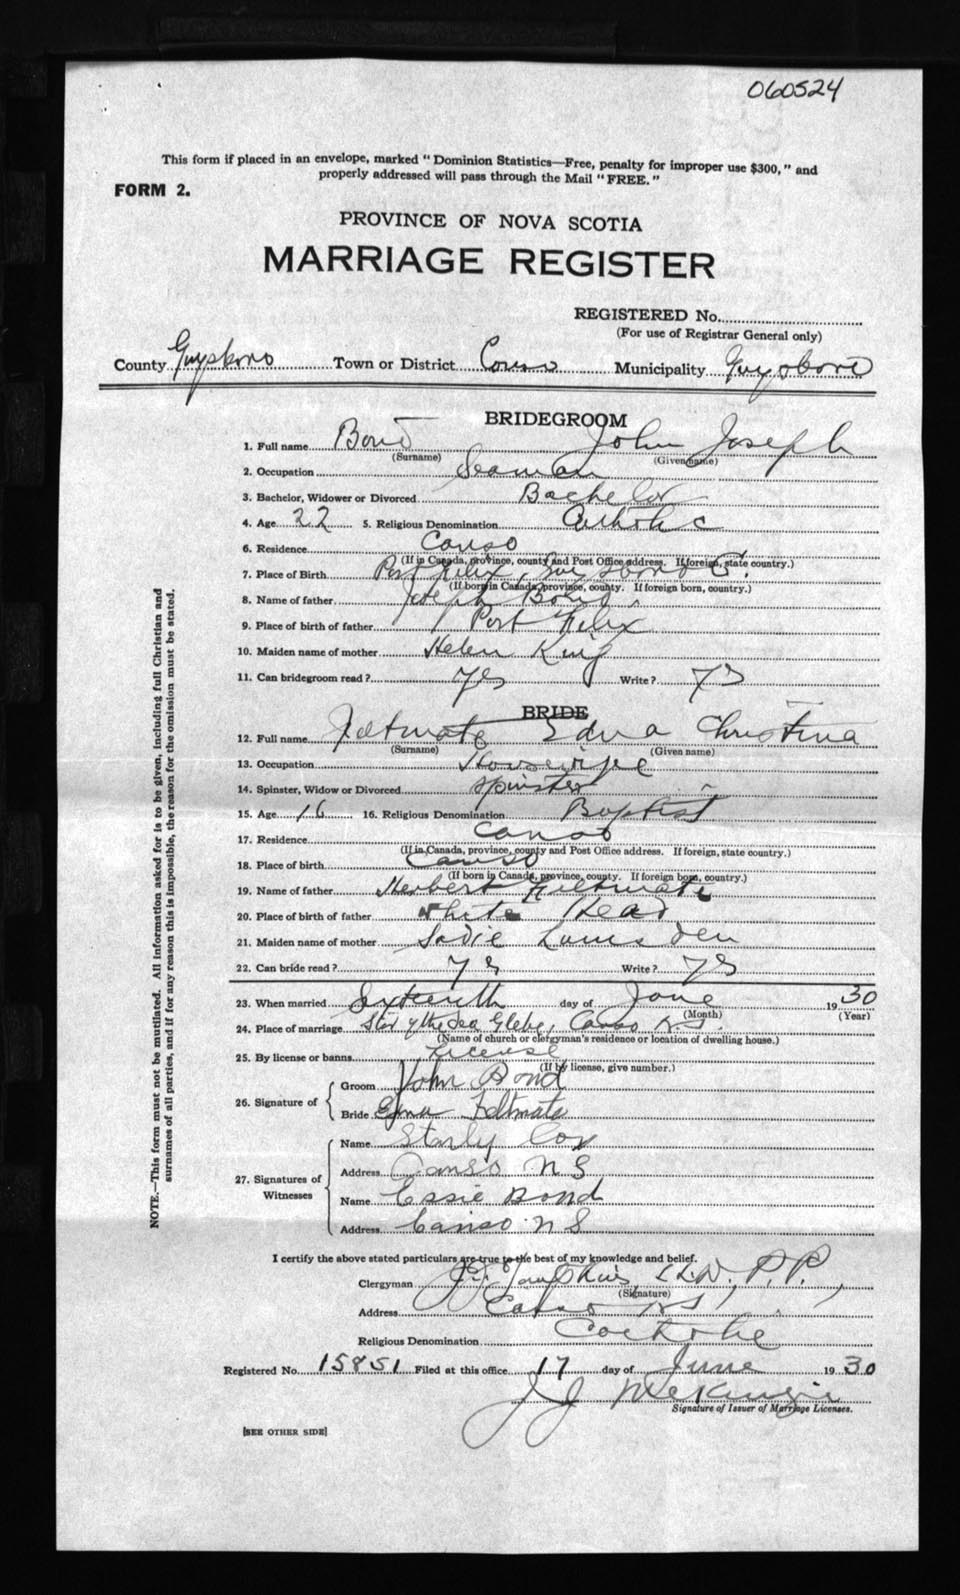 060524
This form if placed in an envelope, marked "Dominion Statistics—Free, penalty for improper use $300," and
properly addressed will pass through the Mail "FREE."
FORM 2.
PROVINCE OF NOVA SCOTIA
MARRIAGE REGISTER
REGISTERED No.
(For use of Registrar General only)
County Guysboro Town or District Canso Municipality Guysboro
BRIDEGROOM
1. Full name Bond John Joseph
(Surname) (Given name)
2. Occupation Seaman
3. Bachelor, Widower or Divorced Bachelor
4. Age 22 5. Religious Denomination Catholic
6. Residence Canso
(If in Canada, province, county and Post Office address. If foreign, state country.)
7. Place of Birth Port Felix, Guysboro
(If born in Canada, province, county. If foreign born, country.)
8. Name of father Joseph Bond
9. Place of birth of father Port Felix
10. Maiden name of mother Helen King
11. Can bridegroom read? Yes Write? Ys
BRIDE
12. Full name Feltmate Edna Christina
(Surname) (Given name)
13. Occupation Housewife
14. Spinster, Widow or Divorced Spinster
15. Age 16 16. Religious Denomination Baptist
17. Residence Canso
(If in Canada, province, county and Post Office address. If foreign, state country.)
18. Place of birth Canso
(If born in Canada, province, county. If foreign born, country.)
19. Name of father Herbert Feltmate
20. Place of birth of father White Head
21. Maiden name of mother Sadie Lumsden
22. Can bride read? Ys Write? Ys
23. When married Sixteenth day of June 1930
(Month) (Year)
24. Place of marriage Star of the Sea Glebe, Canso N.S.
(Name of church or clergyman's residence or location of dwelling house.)
25. By license or banns License
(If by license, give number.)
26. Signature of
Groom John Bond
Bride Edna Feltmate
27. Signatures of Witnesses
Name Cox
Address Canso N S
Name Essie Bond
Address Canso N S
I certify the above stated particulars are true to the best of my knowledge and belief.
Clergyman LL.D., P.P.,
(Signature)
Address Canso N.S.
Religious Denomination Catholic
Registered No. 15851 Filed at this office 17 day of June 1930
J J McKenzie
Signature of Issuer of Marriage Licenses.
[SEE OTHER SIDE]
NOTE.—This form must not be mutilated. All information asked for is to be given, including full Christian and
surnames of all parties, and if for any reason this is impossible, the reason for the omission must be stated.